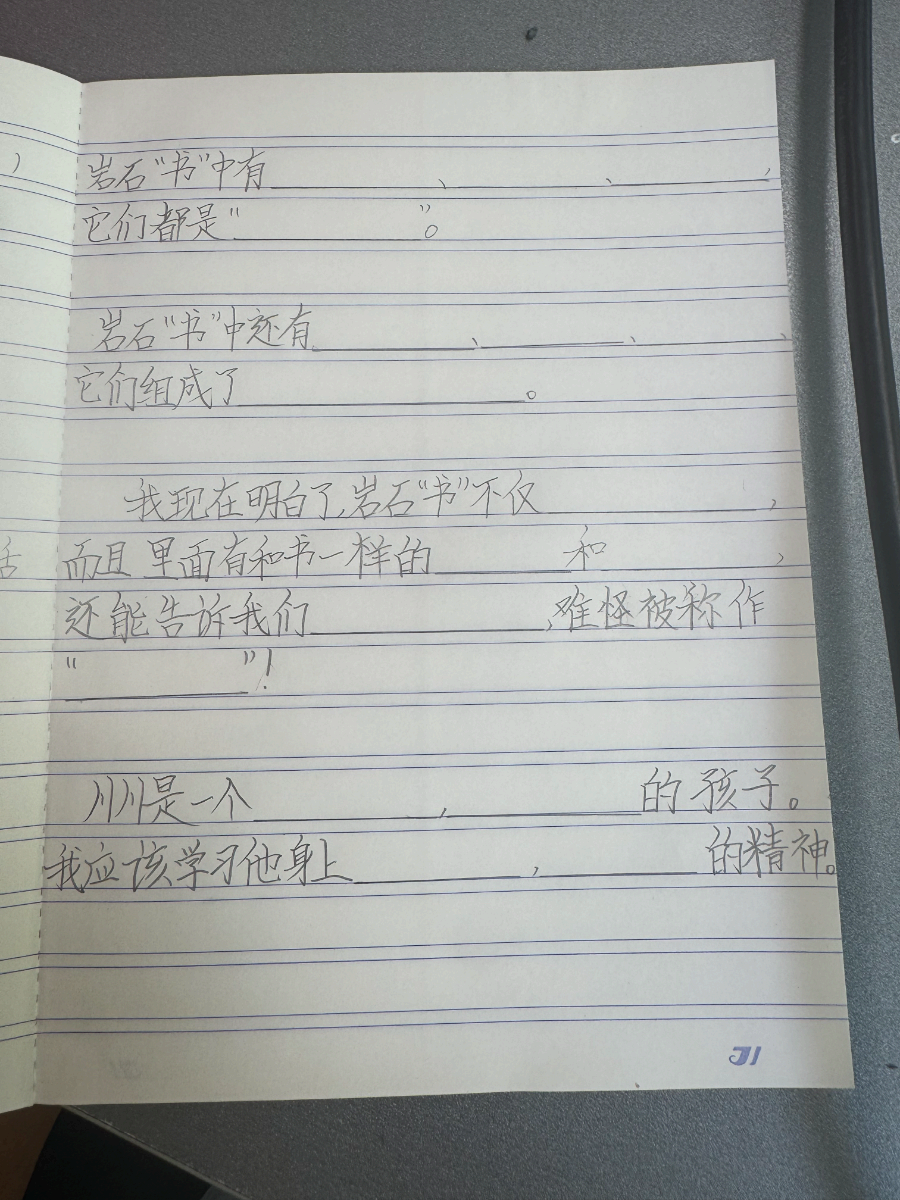 岩石“书”中有________、________、________，
它们都是“________”。
岩石“书”中还有________、________、________、
它们组成了________。
我现在明白了,岩石“书”不仅________，
而且里面有和书一样的________和________，
还能告诉我们________,难怪被称作
“________”！
川川是一个________，________的孩子。
我应该学习他身上________，________的精神。
31